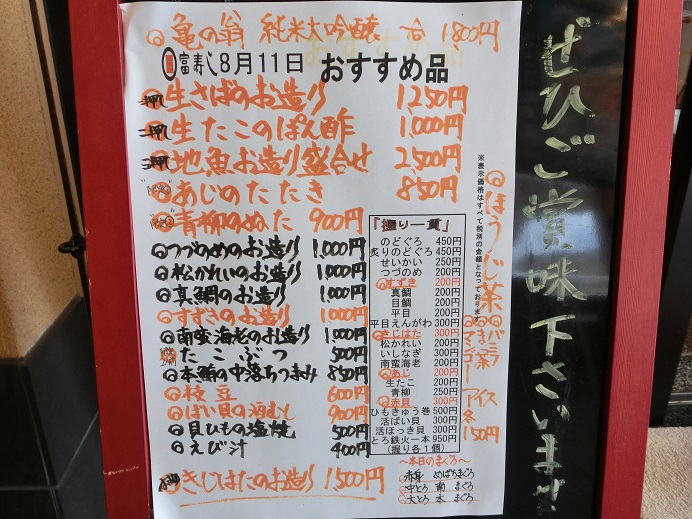 亀の翁 純米大吟醸 一合 1800円
富寿し8月11日 おすすめ品
一押 生さばのお造り 1,250円
二押 生たこのぽん酢 1,000円
三押 地魚お造り盛合せ 2,500円
あじのたたき 850円
青柳のぬた 900円
つづのめのお造り 1,000円
松かれいのお造り 1,000円
真鯛のお造り 1,000円
すずきのお造り 1,000円
南蛮海老のお造り 1,000円
たこぶつ 500円
本鮪の中落ちつまみ 850円
枝豆 600円
ばい貝の酒むし 900円
貝ひもの塩焼 500円
えび汁 400円
きじはたのお造り 1500円
※表示価格はすべて税別の金額となっております。
『握り一貫』
のどぐろ 450円
炙りのどぐろ 450円
せいかい 250円
つづのめ 200円
すずき 200円
真鯛 200円
目鯛 200円
平目 200円
平目えんがわ 300円
きじはた 300円
松かれい 200円
いしなぎ 300円
南蛮海老 200円
あじ 200円
生たこ 200円
青柳 250円
赤貝 300円
ひもきゅう巻 500円
活ばい貝 300円
活ほっき貝 300円
とろ鉄火一本 950円
(握り各1個)
~本日のまぐろ~
赤身 めばちまぐろ
中とろ 南まぐろ
大とろ 本まぐろ
ほうじ茶
バニラ
マンゴー
アイス
各
150円
ぜひご賞味下さいませ